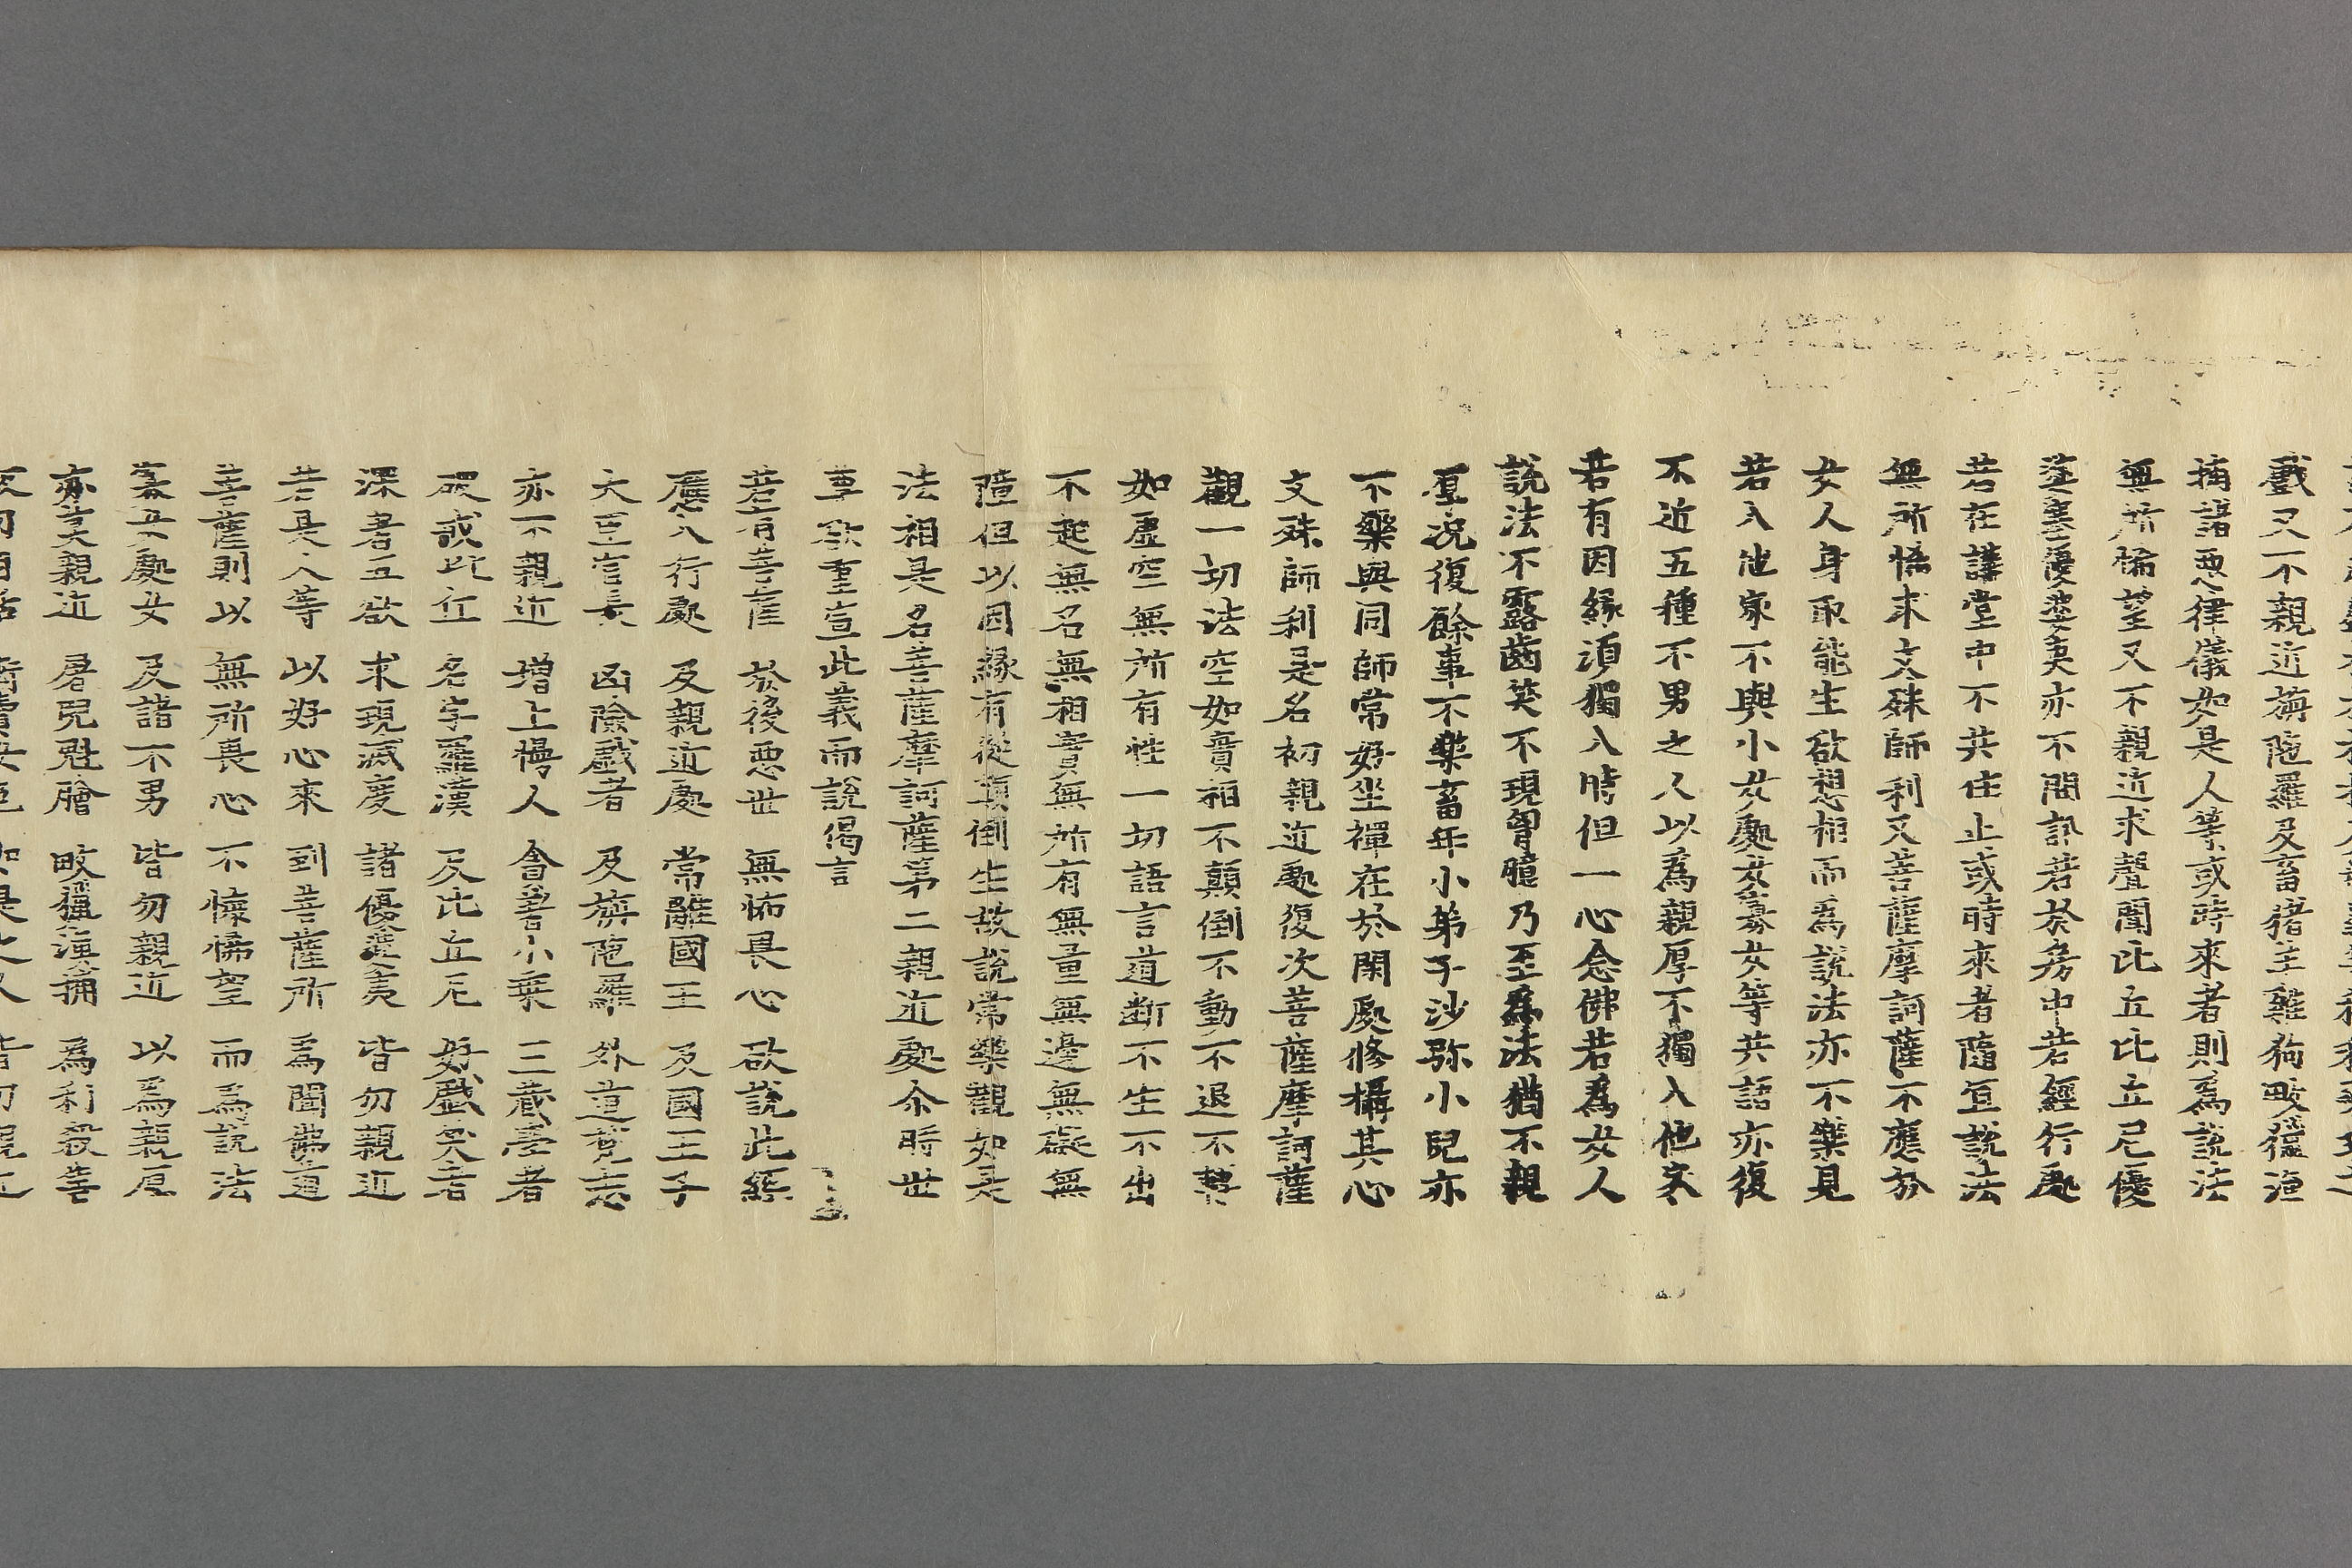 戲又不親近旃陁羅及畜猪羊雞狗畋獵漁
捕諸惡律儀如是人等或時來者則為說法
無所悕望又不親近求聲聞比丘比丘尼優
婆塞優婆夷亦不問訊若於房中若經行處
若在講堂中不共住止或時來者隨宜說法
無所悕求文殊師利又菩薩摩訶薩不應於
女人身取能生欲想相而為說法亦不樂見
若入他家不與小女處女寡女等共語亦復
不近五種不男之人以為親厚不獨入他家
若有因緣須獨入時但一心念佛若為女人
說法不露齒笑不現胷臆乃至為法猶不親
厚況復餘事不樂畜年小弟子沙弥小兒亦
不樂與同師常好坐禪在於閑處修攝其心
文殊師利是名初親近處復次菩薩摩訶薩
觀一切法空如實相不顛倒不動不退不轉
如虛空無所有性一切語言道断不生不出
不起無名無相實無所有無量無邊無礙無
障但以因緣有從顛倒生故說常樂觀如是
法相是名菩薩摩訶薩苐二親近處尒時世
尊欲重宣此義而說偈言
若有菩薩　於後惡世　無怖畏心　欲說此經
應入行處　及親近處　常離國王　及國王子
大臣官長　凶險戲者　及旃陁羅　外道梵志
亦不親近　增上慢人　貪著小乘　三藏學者
破戒比丘　名字羅漢　及比丘尼　好戲笑者
深著五欲　求現滅度　諸優婆夷　皆勿親近
若是人等　以好心來　到菩薩所　為聞佛道
菩薩則以　無所畏心　不懷悕望　而為說法
寡女處女　及諸不男　皆勿親近　以為親厚
亦莫親近　屠兒魁膾　畋獵漁捕　為利殺害